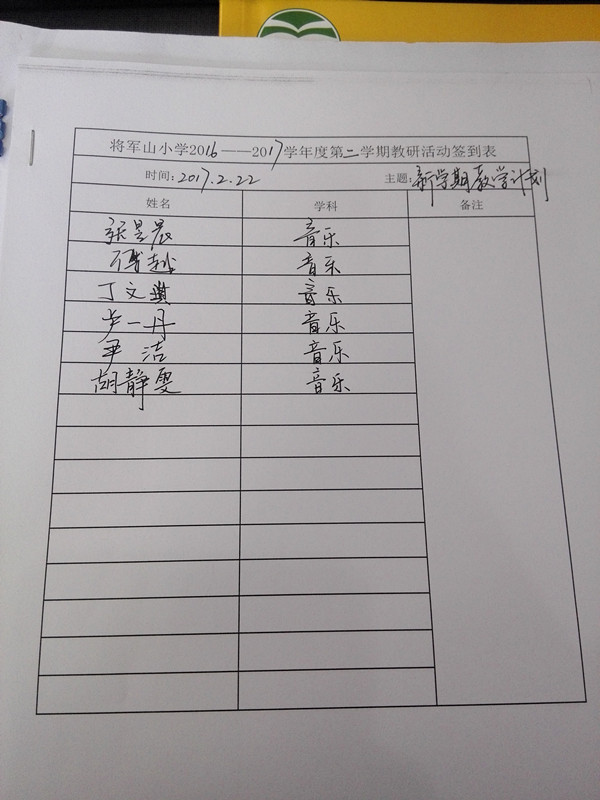 将军山小学2016——2017学年度第二学期教研活动签到表
时间:2017.2.22 主题:新学期教学计划
姓名 学科 备注
张昱晨 音乐
傅赵 音乐
丁文琪 音乐
卢一丹 音乐
尹洁 音乐
胡静雯 音乐